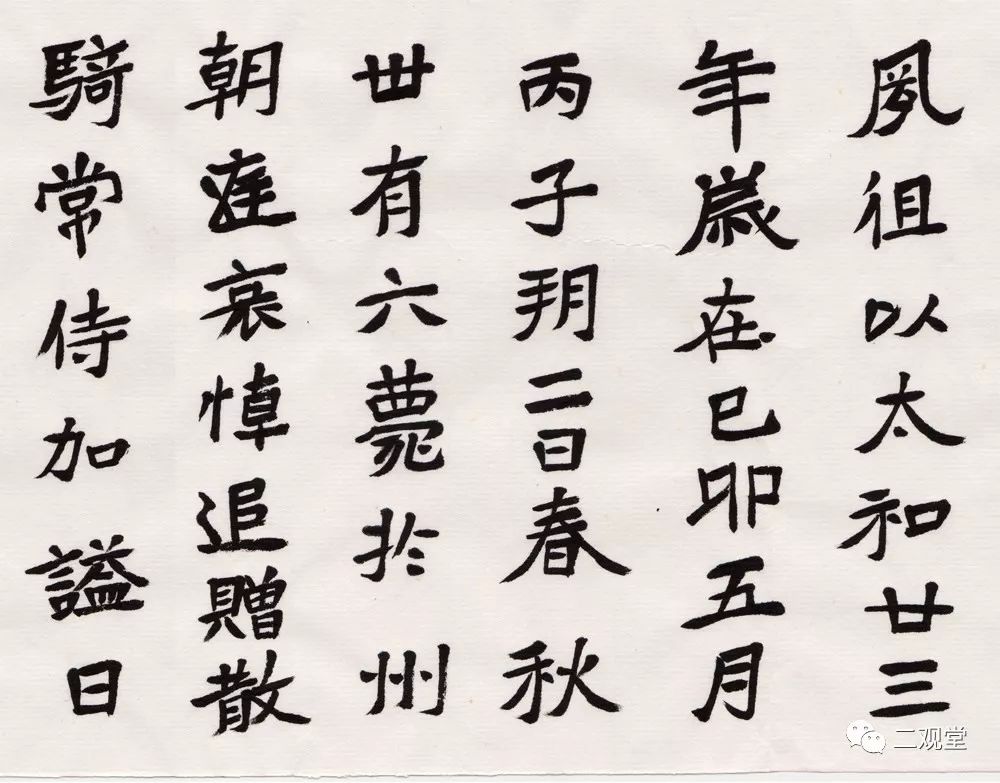 夙徂以太和廿三
年歲在巳卯五月
丙子朔二日春秋
丗有六薨於州
朝廷哀悼追贈散
騎常侍加謚曰
二观堂